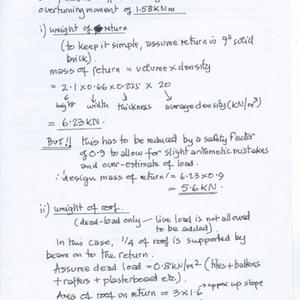 overturning moment of 1.58KNm
i) weight of return
(to keep it simple, assume return is 9" solid
brick).
mass of return = volume × density
= 2.1 × 0.66 × 0.225 × 20
hght width thickness average density (KN/m³)
= 6.23 KN.
BUT!! this has to be reduced by a safety factor
of 0.9 to allow for slight arithmetic mistakes
and over-estimate of load.
∴ design mass of return = 6.23 × 0.9
= 5.6 KN.
ii) weight of roof.
(dead-load only — live load is not allowed
to be added).
In this case, 1/4 of roof is supported by
beam on to the return.
Assume dead load = 0.8 KN/m² (tiles + battens
+ rafters + plasterboard etc).
approx up slope
Area of roof on return = 3 × 1.6